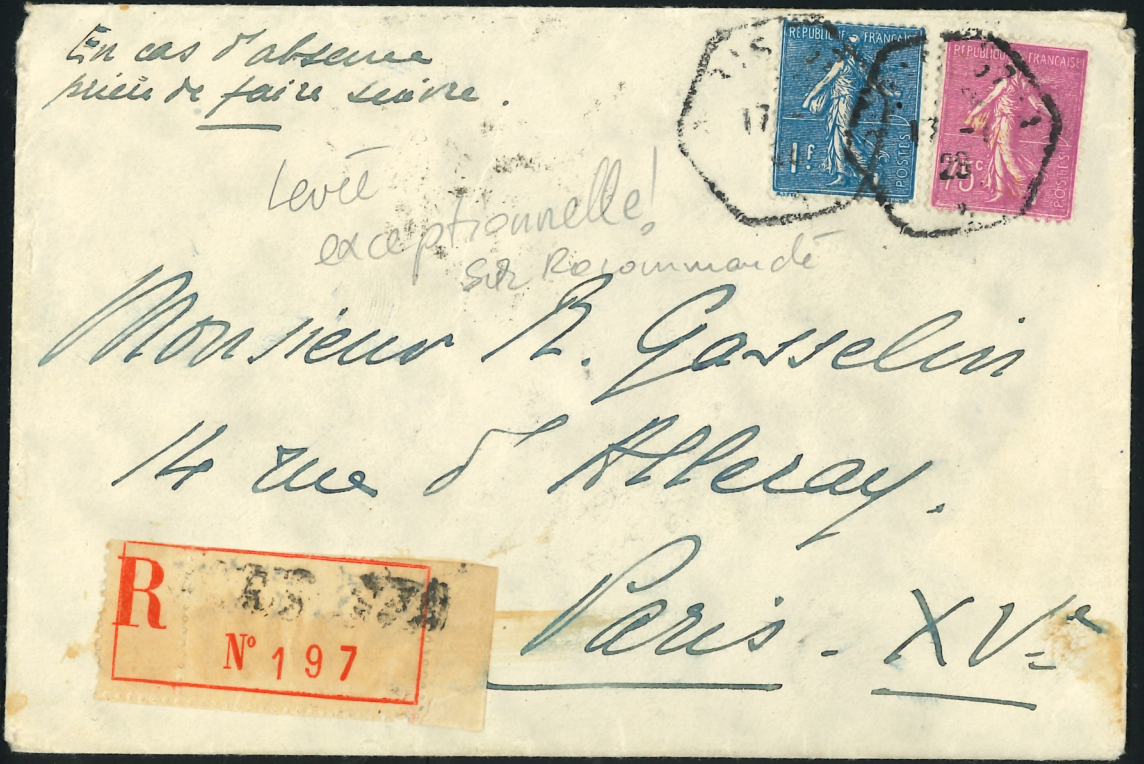 En cas d'absence
prière de faire suivre.
REPUBLIQUE FRANÇAISE
1f
POSTES
REPUBLIQUE FRANÇAISE
75c
POSTES
17
28
Levée
exceptionnelle!
sur Recommandé
Monsieur R. Gasselin
14 rue d'Alleray.
Paris - XVe
R
No 197